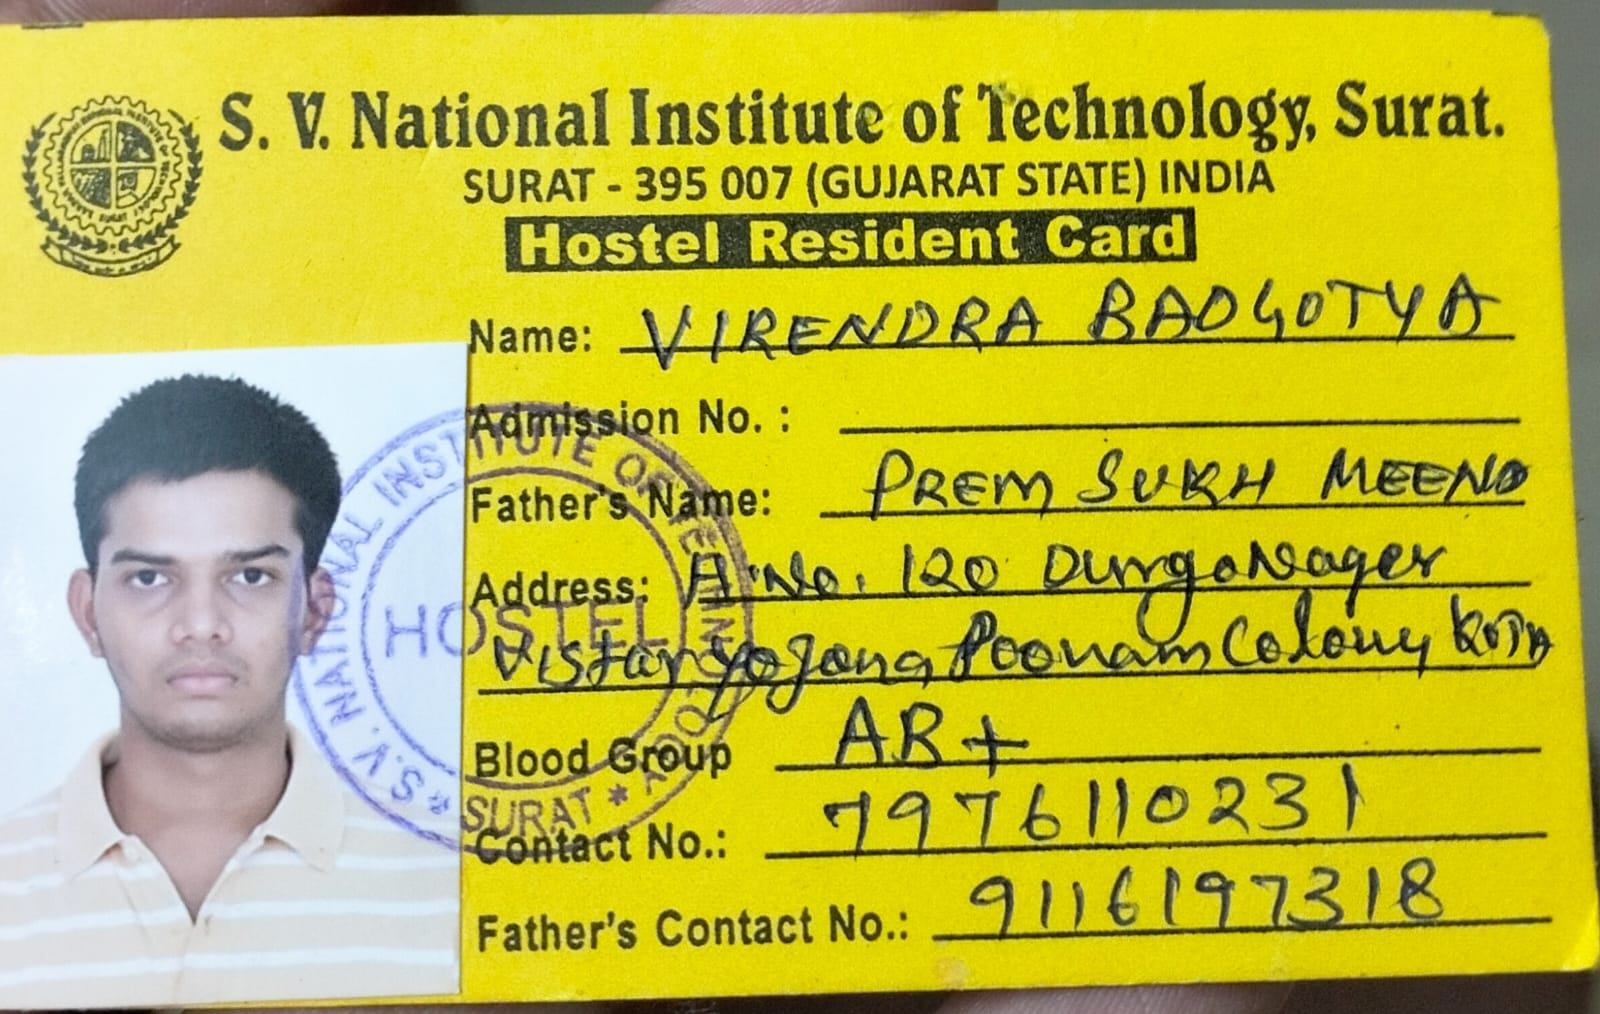 S. V. National Institute of Technology, Surat.
SURAT - 395 007 (GUJARAT STATE) INDIA
Hostel Resident Card
Name: VIRENDRA BADGOTYA
Admission No. :
Father's Name: PREM SUKH MEENA
Address: H.No. 120 Durga Nager
Vistar Yojana, Poonam Colony KOTA
Blood Group AB+
Contact No.: 7976110231
Father's Contact No.: 9116197318
S.V. NATIONAL INSTITUTE OF TECHNOLOGY
HOSTEL
SURAT *